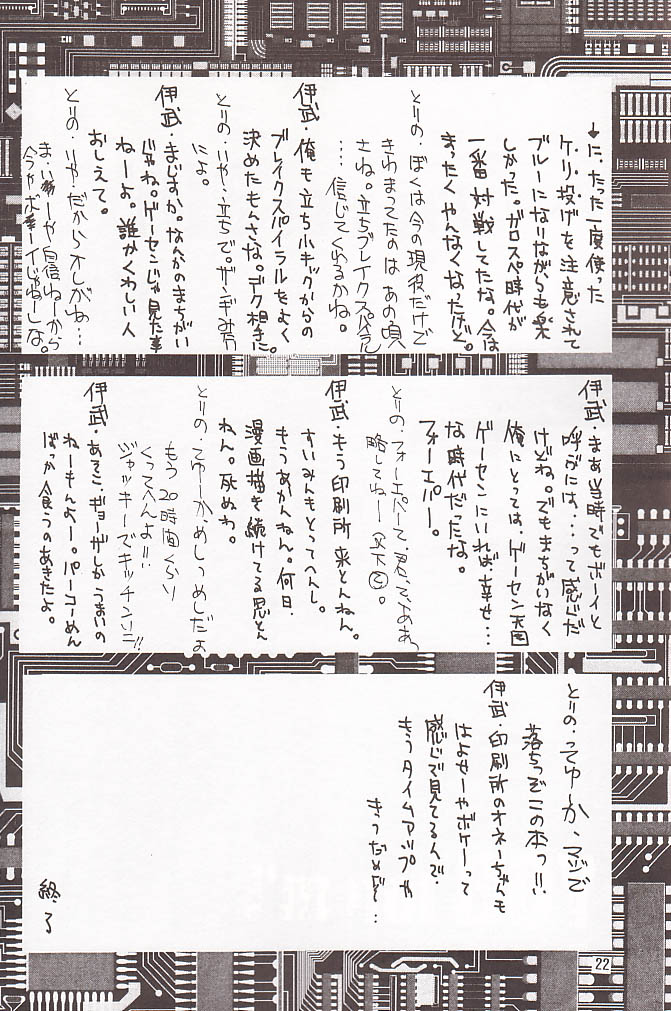 に、たった一度使った
ケリ投げを注意されて
ブルーになりながらも楽
しかった。ガロスペ時代が
一番対戦してたな。今は
まったくやんなくなったけど。
とりの・ぼくは今の現役だけで
きわまってたのはあの頃
さね。立ちブレイクスパイラル
…信じてくれるかね。
伊武・俺も立ち小キックからの
ブレイクスパイラルをよく
決めたもんさな。デク相手に。
とりの・いや・立ちで。ザンギみ
によ。
伊武・まじすか。なんかのまちがい
じゃね。ゲーセンじゃ見た事
ねーよ。誰かくわしい人
おしえて。
とりの・いや・だからオしがね…
自信ねーから
じゃねしな。
伊武・まあ当時でもボーイと
呼ぶには…って感じだ
けどね。でもまちがいなく
俺にとっては、ゲーセン天国
ゲーセンにいれば、幸せ…
な時代だったな。
フォーエバー。
とりの・フォーエバーて、君、て、ああ
略してねー
伊武・もう印刷所来とんねん。
すいみんもとってへんし。
もうあかんねん。何日、
漫画描き続けてる思とん
ねん。死ぬわ。
とりの・てゆーか、めしっめしだよ
もう20時間くらい
くってへんよ!!
ジャッキーでキッチンリニ!!
伊武・あそこ、ギョーザしかうまいの
ねーもんよー。パーコーめん
ばっか食うのあきたよ。
とりの・ってゆーか、マジで
落ちっぞこの本っ!!
伊武・印刷所のオネーちゃんも
はよせーやボケーって
感じで見てるんで、
もうタイムアップや
きっだめだぞ…
終了
22